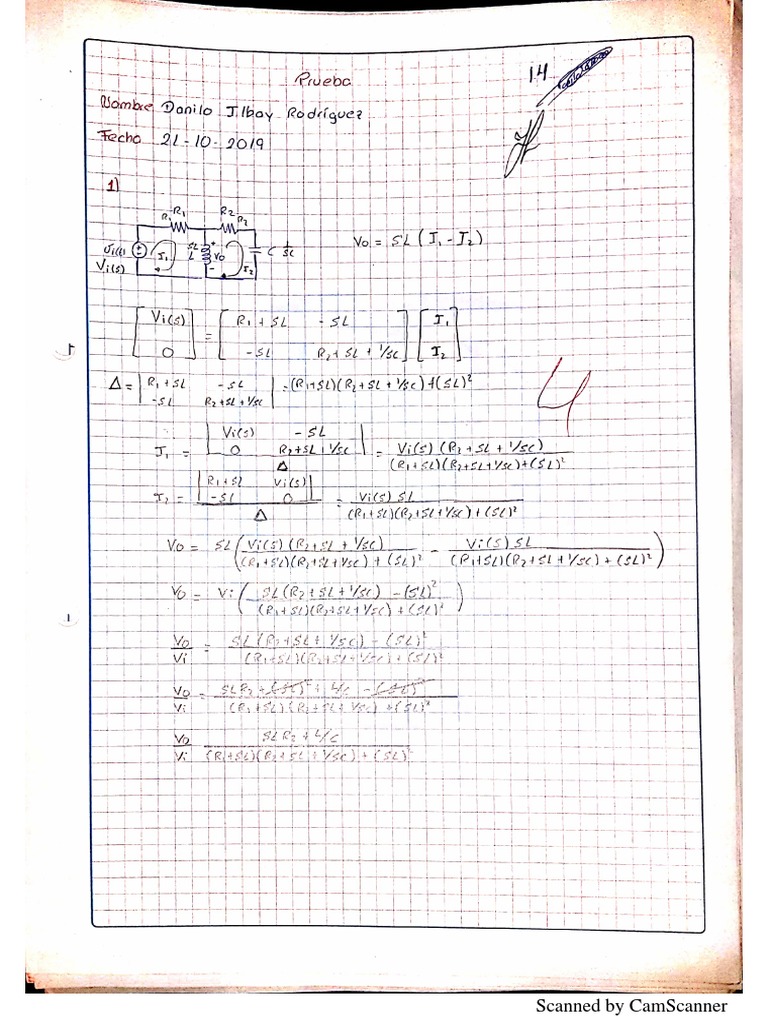 Prueba
14
Nombre Danilo Ilbay Rodríguez
Fecha 21-10-2019
1)
R1 R2
R1 R2
Vi(t) SL L + Vo - C 1/SC
Vi(s) I1 I2
Vo = SL (I1 - I2)
[Vi(s) 0] = [R1 + SL -SL -SL R2 + SL + 1/SC] [I1 I2]
Δ = |R1 + SL -SL -SL R2 + SL + 1/SC| = (R1+SL)(R2 + SL + 1/SC) + (SL)²
4
I1 = |Vi(s) -SL 0 R2+SL+1/SC| / Δ = Vi(s) (R2 + SL + 1/SC) / (R1+SL)(R2+SL+1/SC)+(SL)²
I2 = |R1+SL Vi(s) -SL 0| / Δ = Vi(s) SL / (R1+SL)(R2+SL+1/SC)+(SL)²
Vo = SL (Vi(s) (R2+SL+1/SC) / (R1+SL)(R2+SL+1/SC) + (SL)² - Vi(s) SL / (R1+SL)(R2+SL+1/SC) + (SL)²)
Vo = Vi (SL(R2+SL+1/SC) - (SL)² / (R1+SL)(R2+SL+1/SC) + (SL)²)
Vo/Vi = SL(R2+SL+1/SC) - (SL)² / (R1+SL)(R2+SL+1/SC) + (SL)²
Vo/Vi = SLR2 + (SL)² + L/C - (SL)² / (R1+SL)(R2+SL+1/SC) + (SL)²
Vo/Vi SLR2 + L/C / (R1+SL)(R2+SL+1/SC) + (SL)²
Scanned by CamScanner